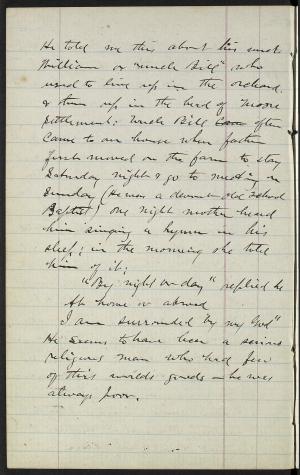 He told me this about his uncle
William or "uncle Bill" who
used to live up in the orchard.
& then up in the head of Moore
settlement; Uncle Bill often
came to our house when father
first moved on the farm to stay
Saturday night & go to meeting on
Sunday (He was a devout old school
Baptist) One night mother heard
him singing a hymn in his
sleep; in the morning she told
him of it;
"By night or day" replied he
At home or abroad
I am surrounded by my God"
He seems to have been a serious
religious man who had few
of this worlds goods — he was
always poor.